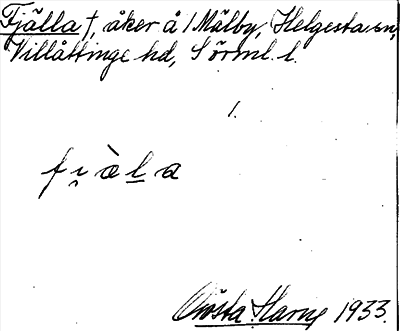 Fjälla †, åker å 1 Mälby, Helgesta sn,
Villåttinge hd, Sörml. l.
1.
fi̯àla
Gösta Harne 1933.